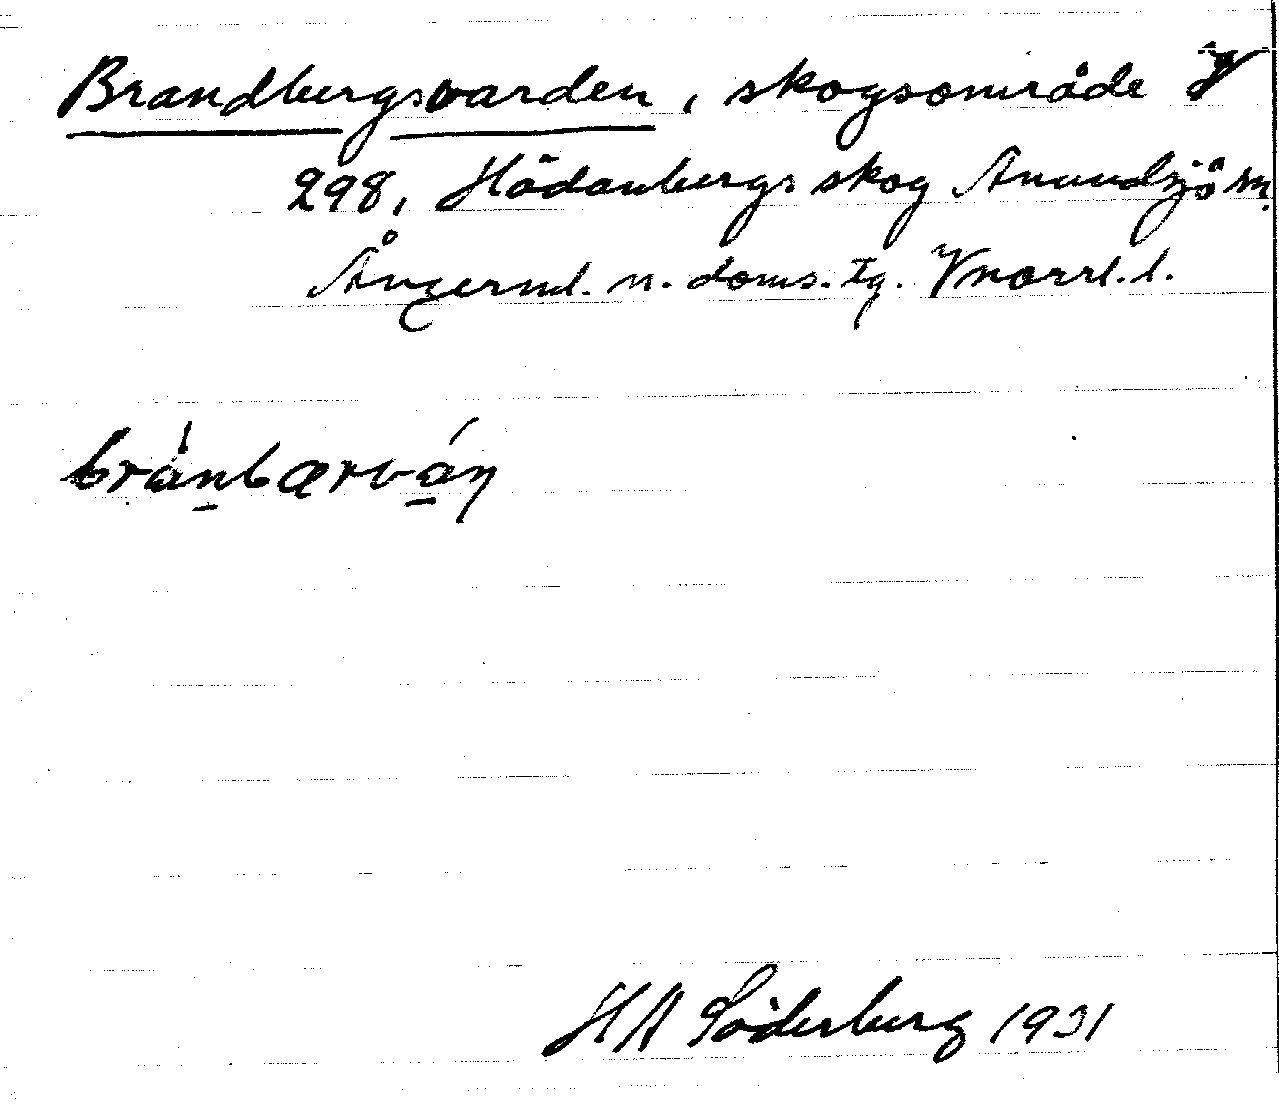 Brandbergsvarden, skogsområde γ
298, Hädanbergs skog Anundsjö sn.
Ångerml. n. doms. tg. Vnorrl. l.
brȧ́nbærváŋ
HA Söderberg 1931